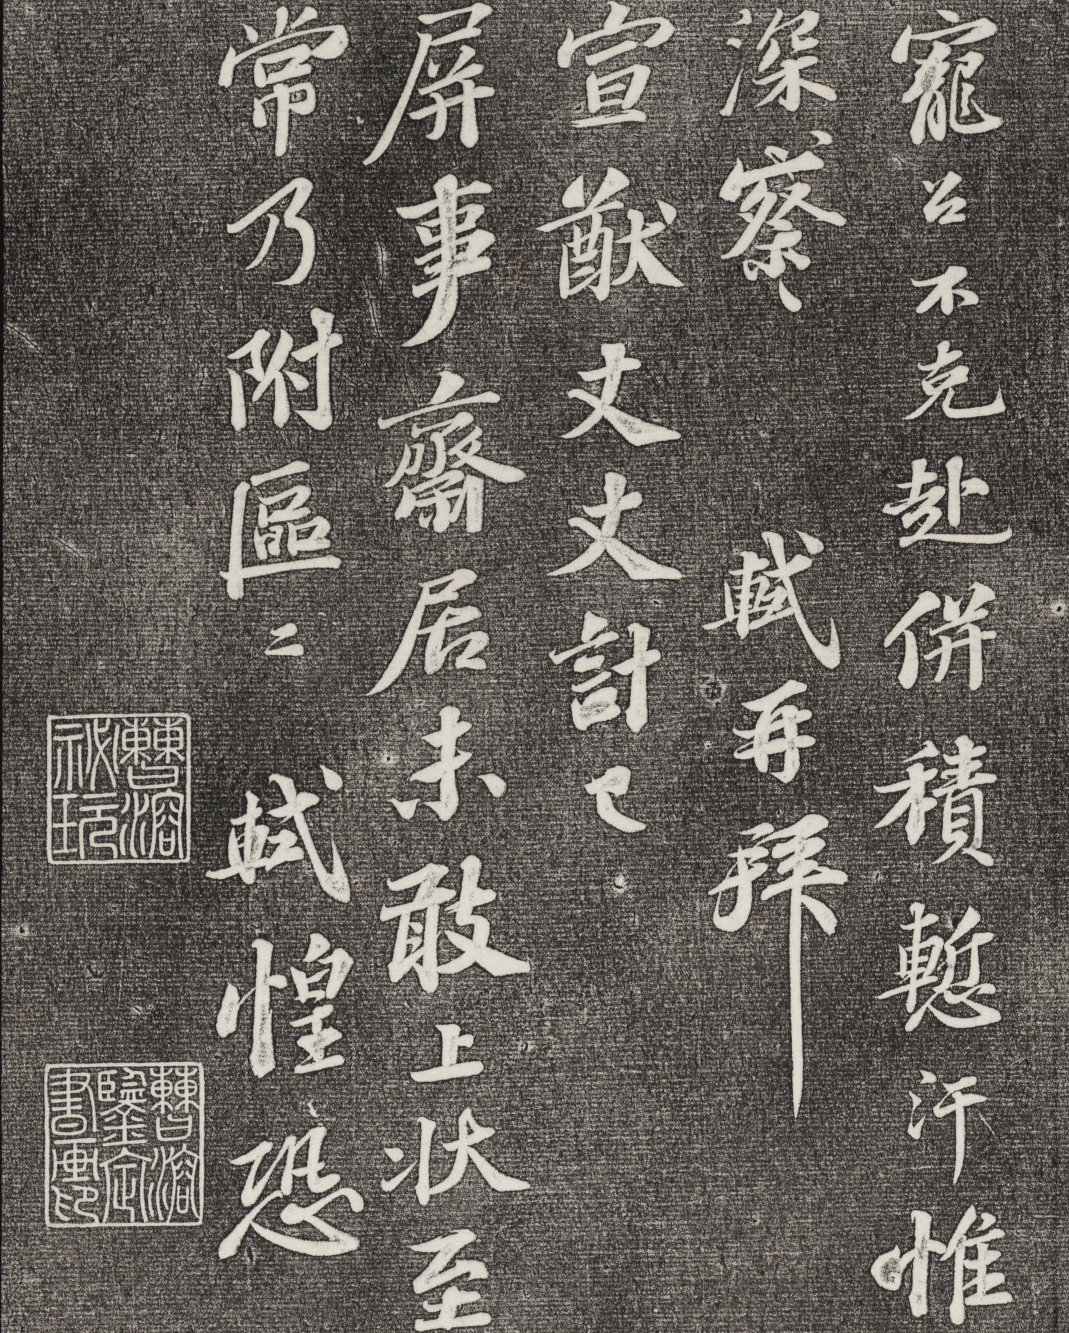 寵召不克赴併積慙汗惟
深察 軾再拜
宣猷丈丈計已
屏事齋居未敢上狀至
常乃附區二 軾惶恐
曹溶
祕玩
曹溶
鑒定
書畫印